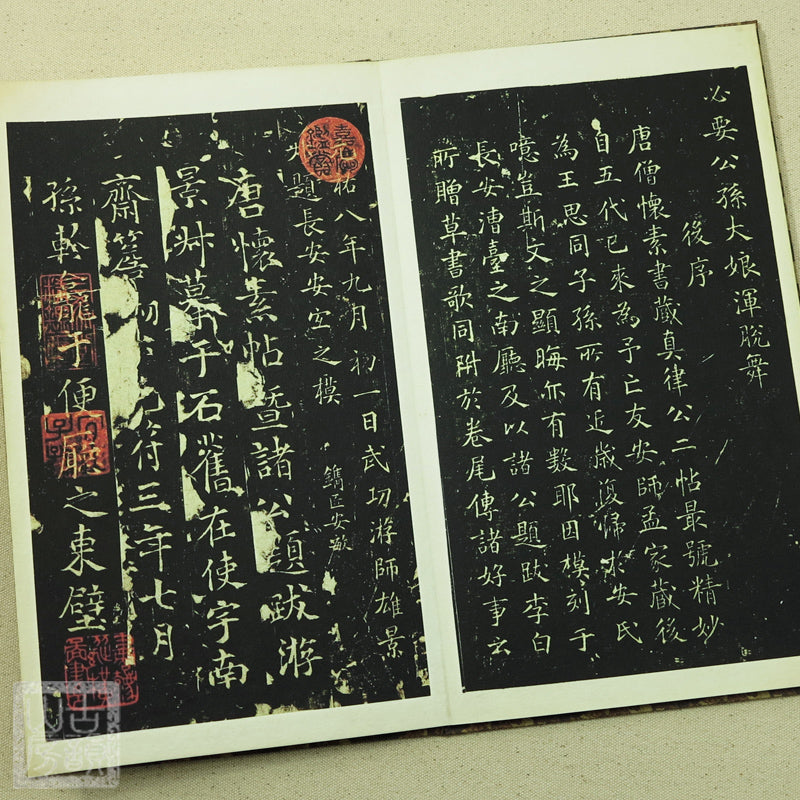 必要公孫大娘渾脫舞
後序
唐僧懷素書藏真律公二帖最號精妙
自五代已來為予亡友安師孟家藏後
為王思同子孫所有近歲復歸安氏
噫豈斯文之顯晦亦有數耶因模刻于
長安漕臺之南廳及以諸公題跋李白
所贈草書歌同附於卷尾傳諸好事云
祐八年九月初一日武功游師雄景
題長安安宜之模
鐫匠安敏
唐懷素帖暨諸公題跋游
景叔摹于石舊在使宇南
齋簷符三年七月
孫軫龕于便廳之東壁